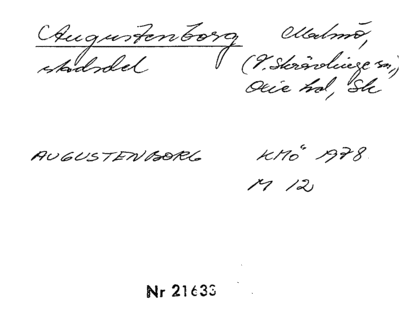 Augustenborg Malmö,
stadsdel (V. Skrävlinge sn,)
Oxie hd, Sk
AUGUSTENBORG KMÖ 1978
M 12
Nr 21633